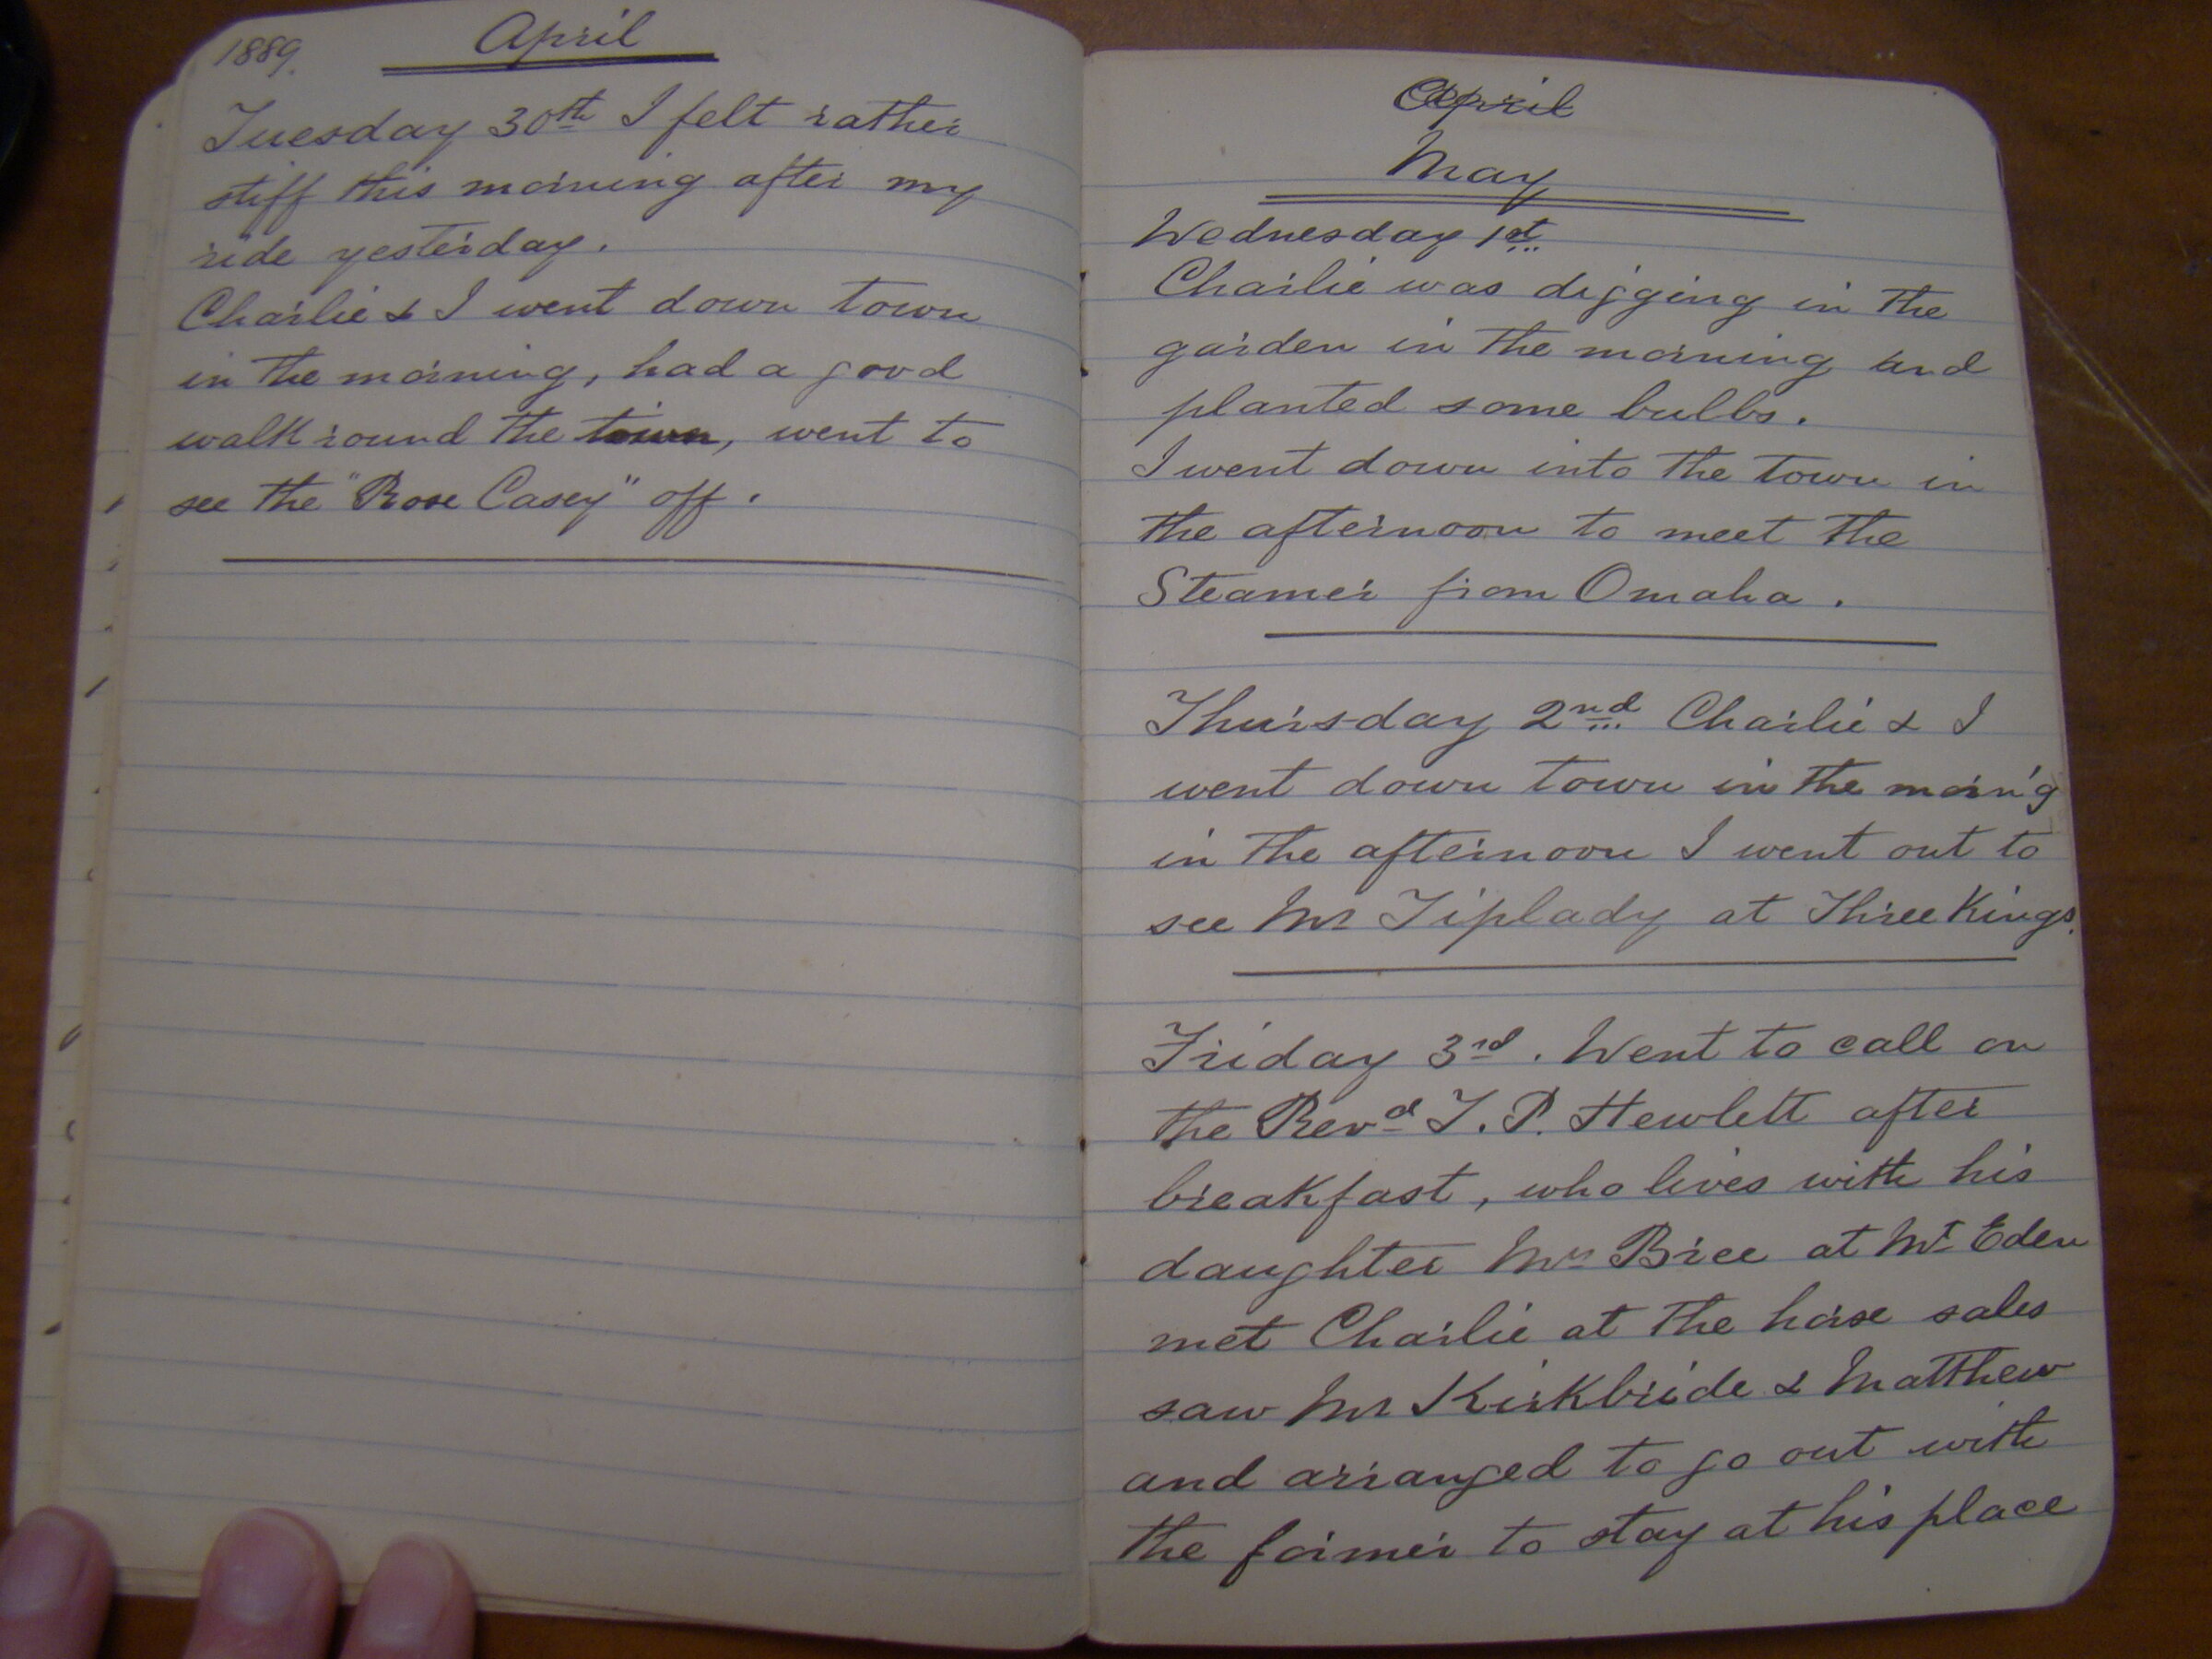 1889.
April
Tuesday 30th I felt rather
stiff this morning after my
ride yesterday.
Charlie & I went down town
in the morning, had a good
walk round the town, went to
see the "Rose Casey" off.
April
May
Wednesday 1st
Charlie was digging in the
garden in the morning and
planted some bulbs.
I went down into the town in
the afternoon to meet the
Steamer from Omaha.
Thursday 2nd Charlie & I
went down town in the morn'g
in the afternoon I went out to
see Mr Tiplady at Three Kings.
Friday 3rd. Went to call on
the Revd T. P. Hewlett after
breakfast, who lives with his
daughter Mrs Bree at Mt Eden
met Charlie at the horse sales
saw Mr Kirkbride & Matthew
and arranged to go out with
the former to stay at his place